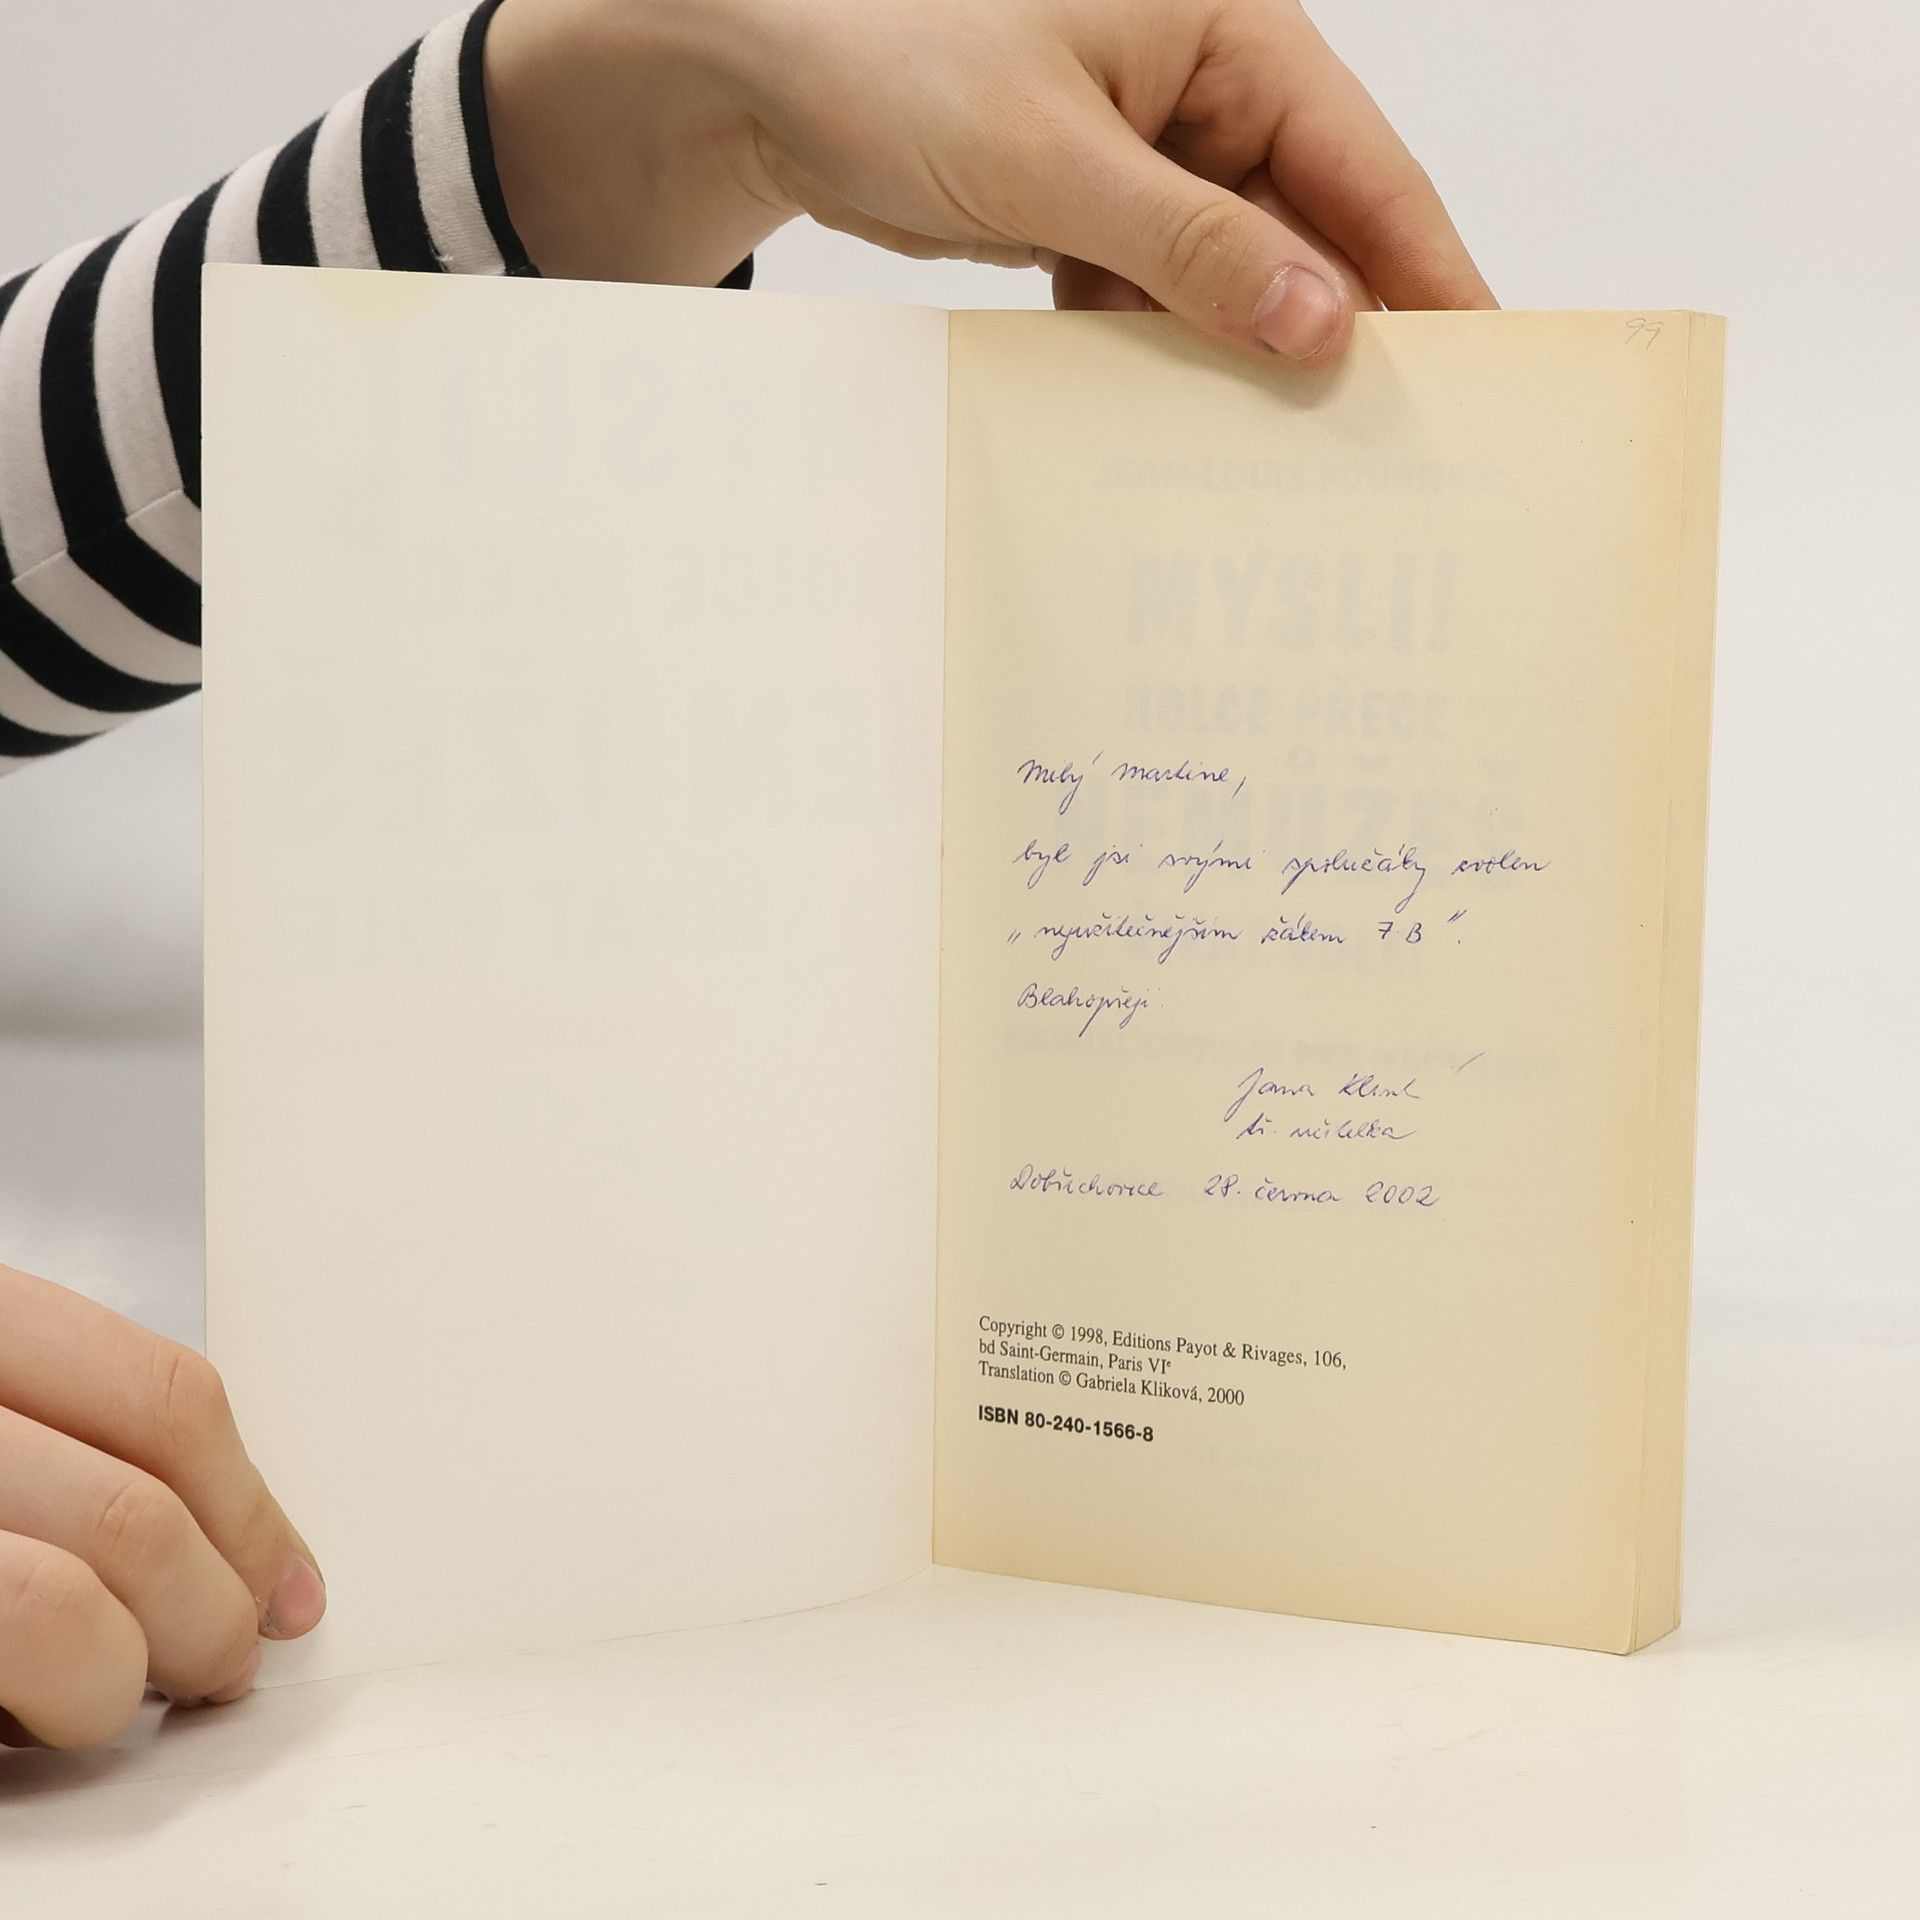 99
JEAN-LOUIS
MYSLI!
HOLCE PŘECE
NEMŮŽEŠ
Milý Martine,
byl jsi svými spolužáky zvolen
„nejužitečnějším žákem 7. B".
Blahopřeji.
Jana
tř. učitelka
Dobřichovice 28. června 2002
Copyright © 1998, Editions Payot & Rivages, 106,
bd Saint-Germain, Paris VIe
Translation © Gabriela Kliková, 2000
ISBN 80-240-1566-8